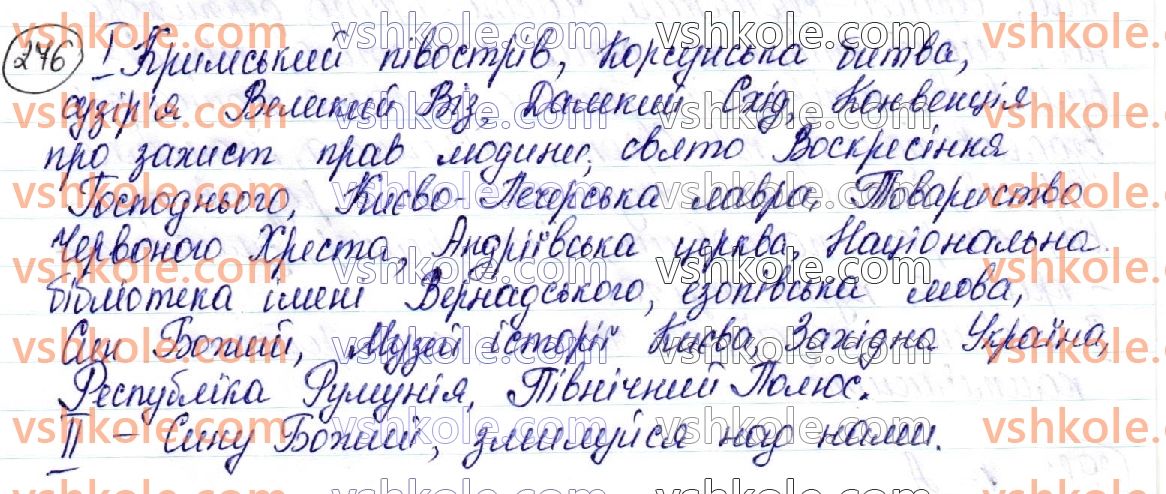 276 I Кримський півострів, Корсунська битва,
сузір'я Великий Віз, Далекий Схід, Конвенція
про захист прав людини, свято Воскресіння
Господнього, Києво-Печерська лавра, Товариство
Червоного Хреста, Андріївська церква, Національна
бібліотека імені Вернадського, езопівська мова,
Син Божий, Музей історії Києва, Західна Україна,
Республіка Румунія, Північний Полюс.
II - Сину Божий, змилуйся над нами.
vshkole.com